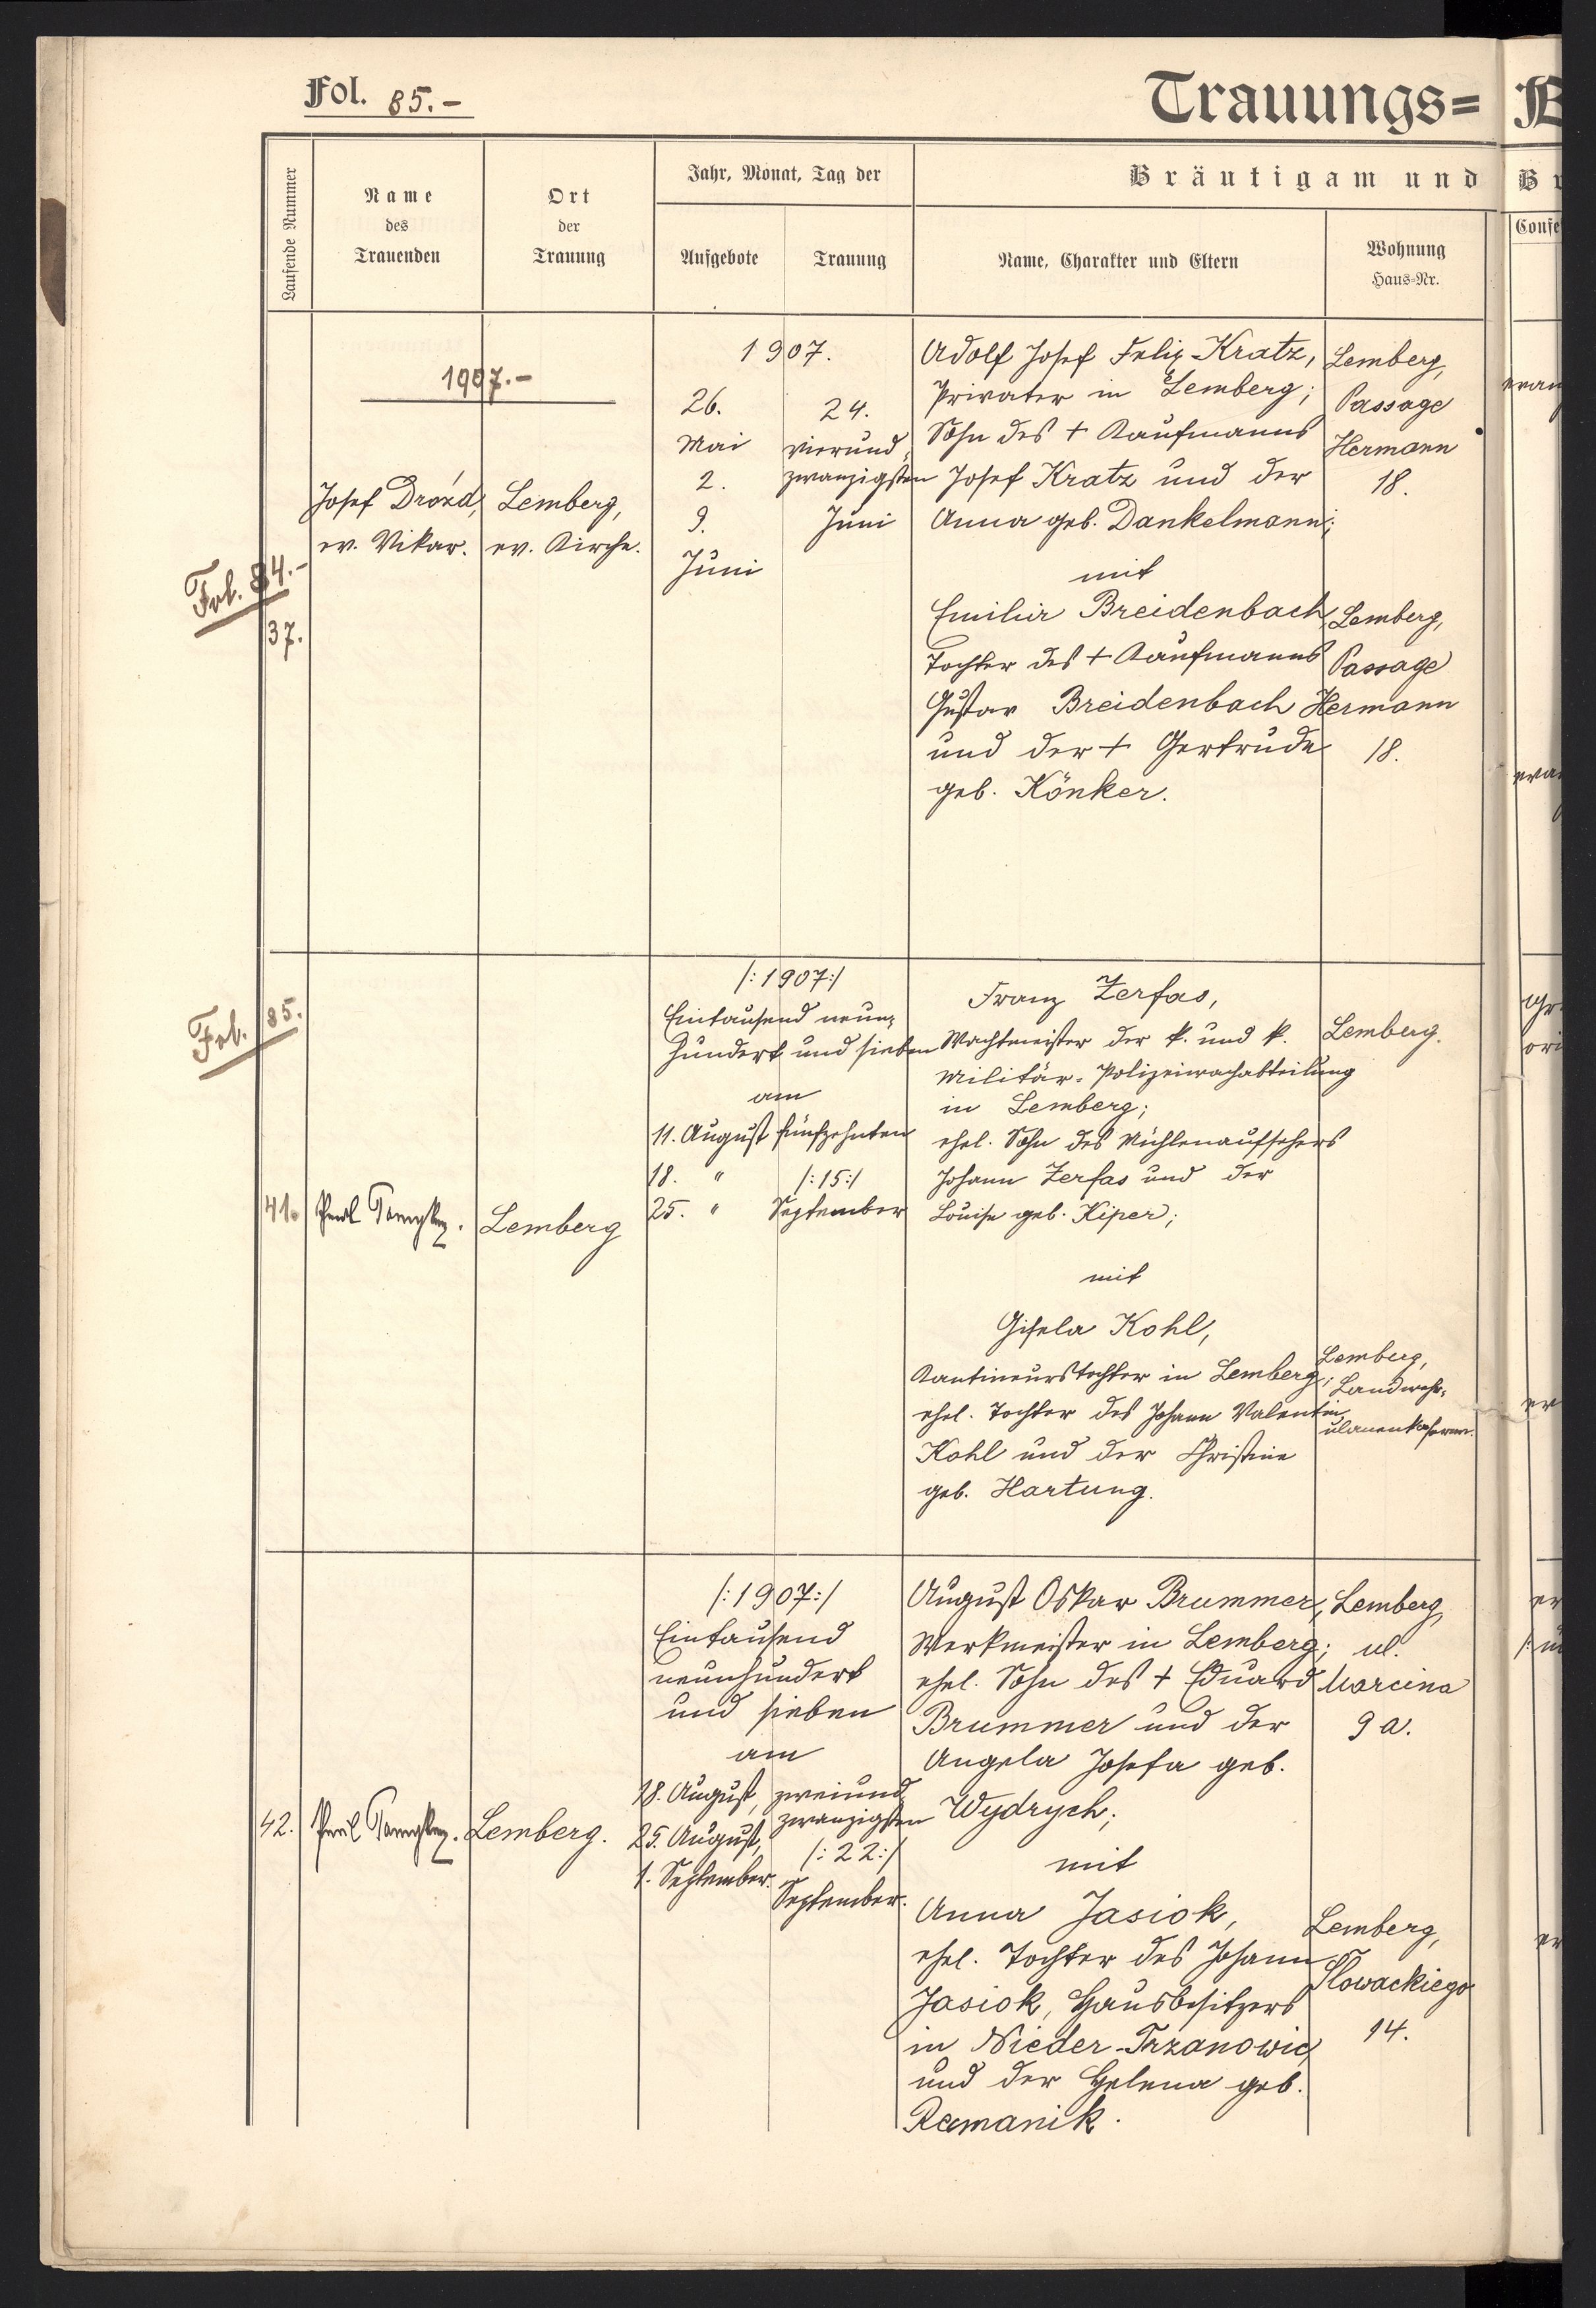 Fol. 85.-
Trauungs=
Laufende Nummer
Name
des
Trauenden
Ort
der
Trauung
Jahr, Monat, Tag der
Aufgebote
Trauung
Bräutigam und
Name, Charakter und Eltern
Wohnung
Haus-Nr.
Confe
1907.-
37.
Josef Drozd,
ev. Vikar.
Lemberg,
ev. Kirche.
1907.
26.
Mai
2.
9.
Juni
24.
vierund-
zwanzigsten
Juni
Adolf Josef Felix Kratz,
Privater in Lemberg;
Sohn des + Kaufmanns
Josef Kratz und der
Anna geb. Dankelmann;
mit
Emilie Breidenbach,
Tochter des + Kaufmanns
Gustav Breidenbach
und der + Gertrude
geb. Könker.
Lemberg,
Passage
Hermann
18.
Lemberg,
Passage
Hermann
18.
84.-
85.
41.
Lemberg
/:1907:/
Eintausend neun-
hundert und sieben
am
11. August
18. "
25. "
fünfzehnten
/:15:/
September
Franz Zerfas,
Wachtmeister der k. und k.
Militär-Polizeiwachabteilung
in Lemberg;
ehel. Sohn des Mühlenaufsehers
Johann Zerfas und der
Louise geb. Kiper;
mit
Gisela Kohl,
Kantineurstochter in Lemberg;
ehel. Tochter des Johann Valentin
Kohl und der Christine
geb. Hartung.
Lemberg.
Lemberg,
Landwehr-
ulanenkaserne.
42.
Lemberg.
/:1907:/
Eintausend
neunhundert
und sieben
am
18. August,
25. August,
1. September.
zweiund
zwanzigsten
/:22:/
September.
August Oskar Brummer,
Werkmeister in Lemberg;
ehel. Sohn des + Eduard
Brummer und der
Angela Josefa geb.
Wydrych;
mit
Anna Jasiok,
ehel. Tochter des Johann
Jasiok, Hausbesitzers
in Nieder-Trzanowic
und der Helena geb.
Ramanik.
Lemberg,
ul.
Marcina
9 a.
Lemberg,
Slowackiego
14.